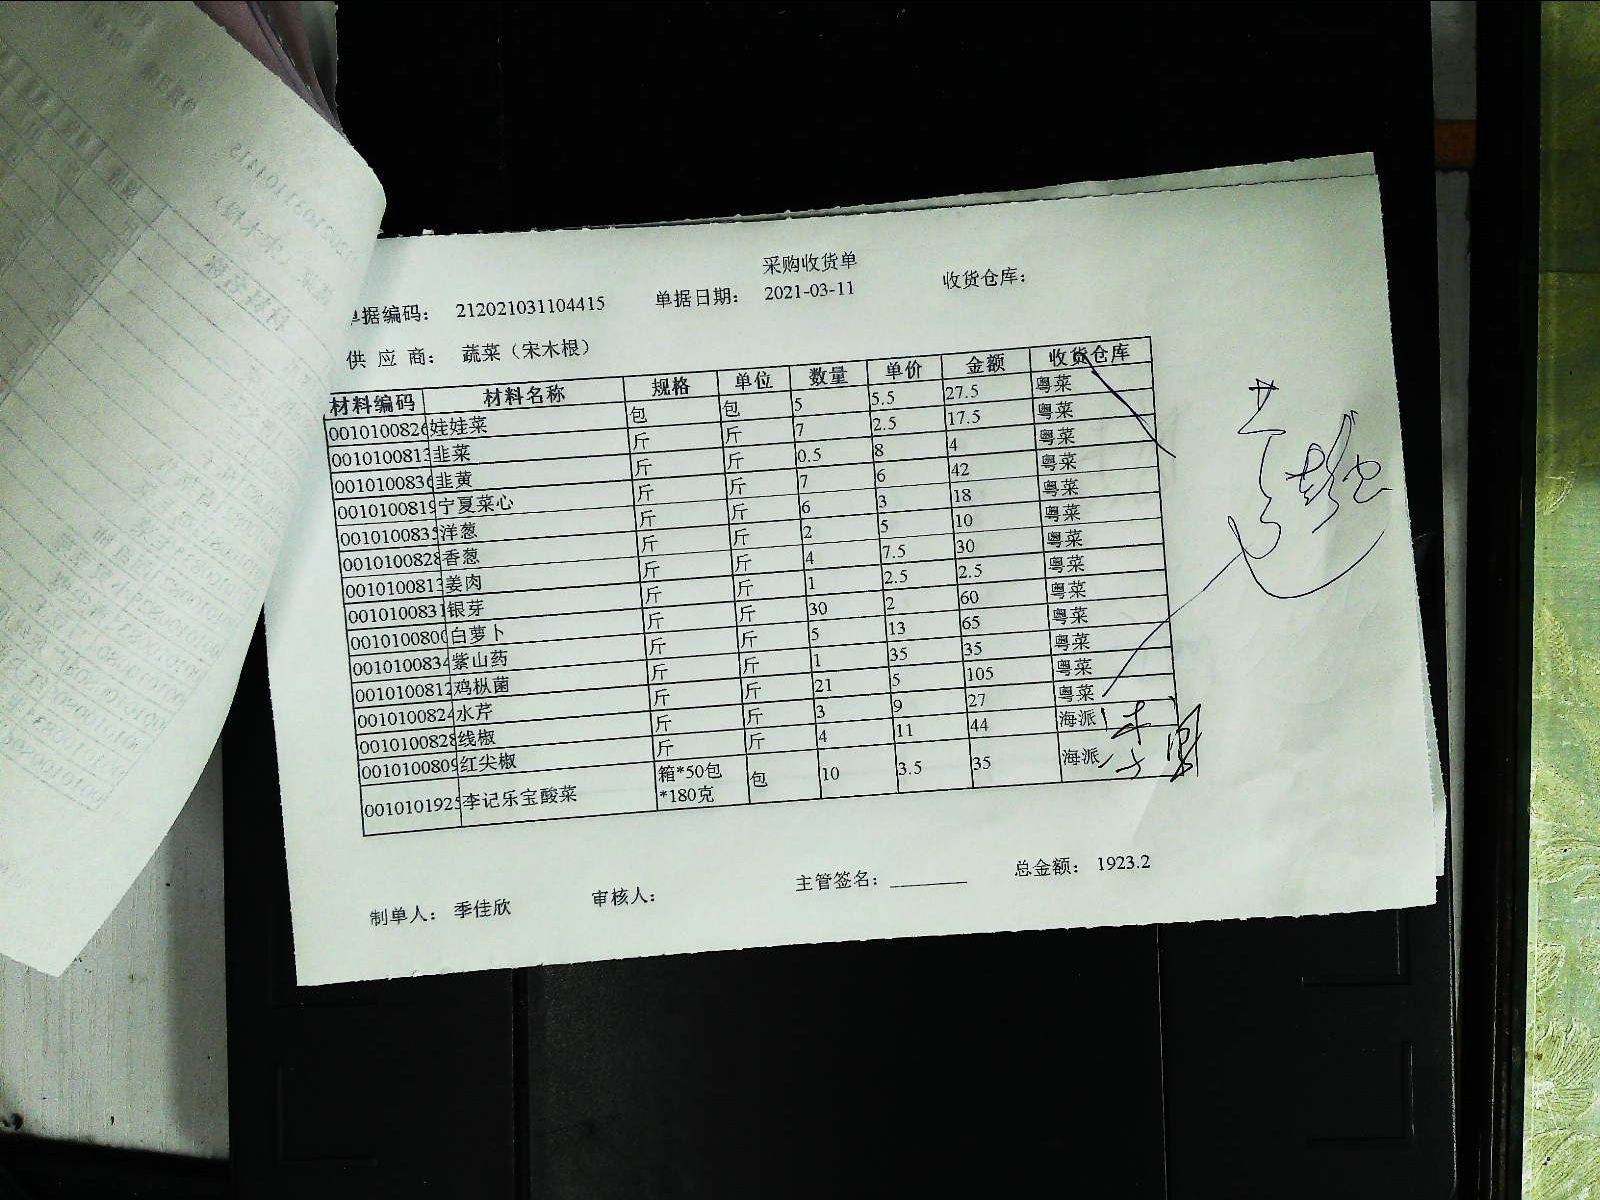 采购收货单
单据编码： 212021031104415 单据日期： 2021-03-11 收货仓库：
供 应 商： 蔬菜（宋木根）
材料编码 材料名称 规格 单位 数量 单价 金额 收货仓库
0010100826 娃娃菜 包 包 5 5.5 27.5 粤菜
0010100813 韭菜 斤 斤 7 2.5 17.5 粤菜
0010100836 韭黄 斤 斤 0.5 8 4 粤菜
0010100819 宁夏菜心 斤 斤 7 6 42 粤菜
0010100835 洋葱 斤 斤 6 3 18 粤菜
0010100828 香葱 斤 斤 2 5 10 粤菜
0010100813 姜肉 斤 斤 4 7.5 30 粤菜
0010100831 银芽 斤 斤 1 2.5 2.5 粤菜
0010100800 白萝卜 斤 斤 30 2 60 粤菜
0010100834 紫山药 斤 斤 5 13 65 粤菜
0010100812 鸡枞菌 斤 斤 1 35 35 粤菜
0010100824 水芹 斤 斤 21 5 105 粤菜
0010100828 线椒 斤 斤 3 9 27 粤菜
0010100809 红尖椒 斤 斤 4 11 44 海派
0010101925 李记乐宝酸菜 箱*50包*180克 包 10 3.5 35 海派
制单人： 季佳欣 审核人： 主管签名：________ 总金额： 1923.2